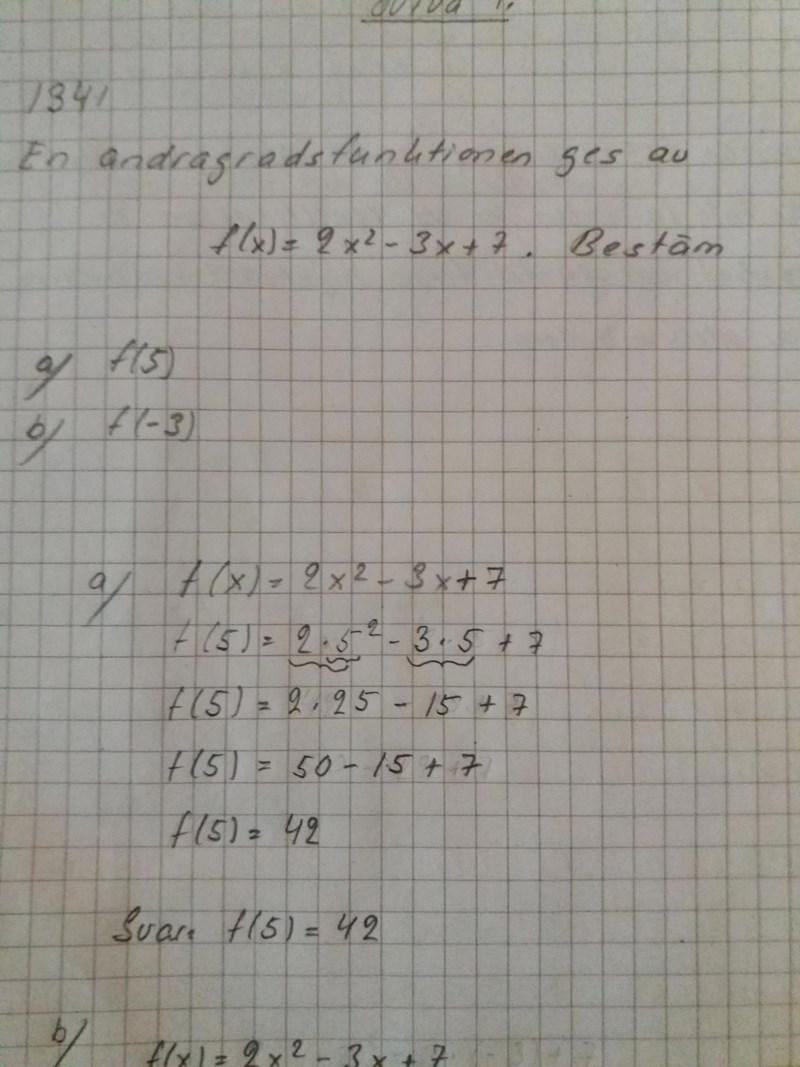 1341
En andragradsfunktionen ges av
f(x) = 2x² - 3x + 7. Bestäm
a) f(5)
b) f(-3)
a) f(x) = 2x² - 3x + 7
f(5) = 2·5² - 3·5 + 7
f(5) = 2·25 - 15 + 7
f(5) = 50 - 15 + 7
f(5) = 42
Svar. f(5) = 42
b) f(x) = 2x² - 3x + 7